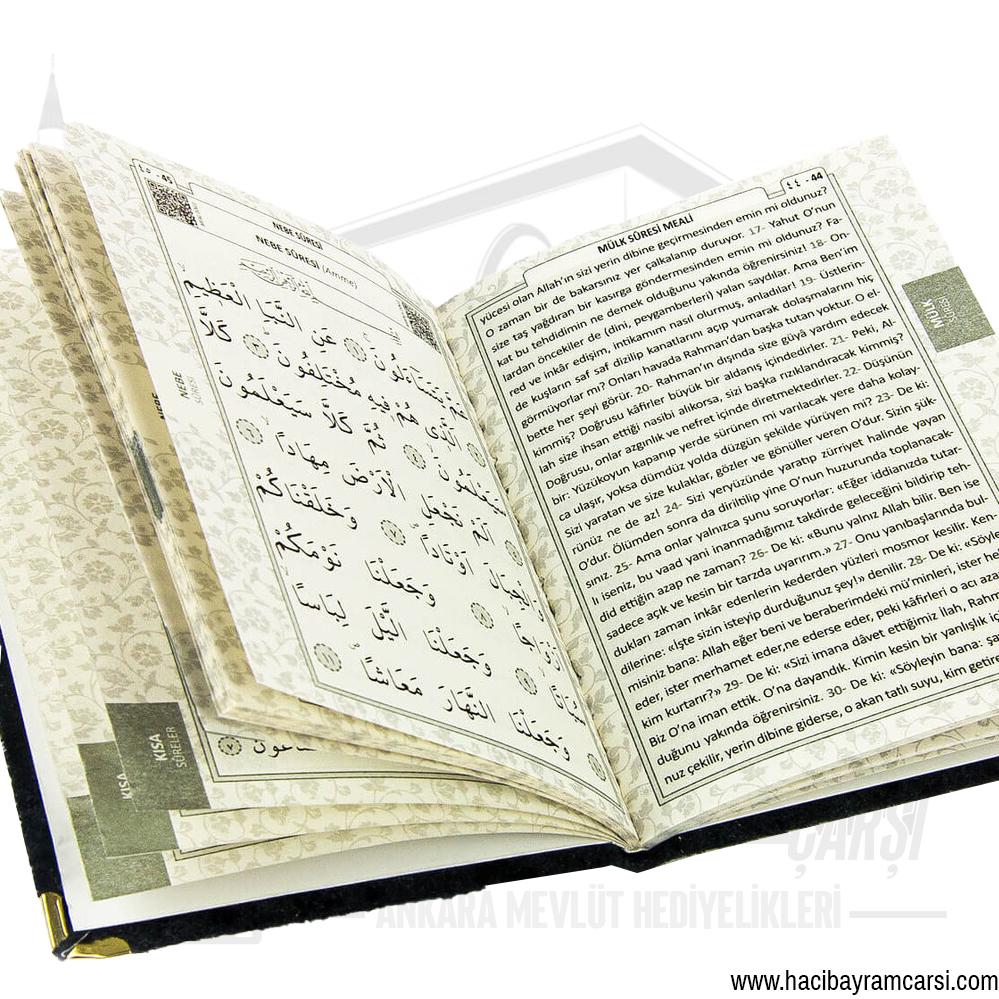 ٤٥ - 45
NEBE SÛRESİ
NEBE SÛRESİ (Amme)
عَنِ النَّبَإِ الْعَظِيمِ
يَتَسَاءَلُونَ
اَلَّذِى هُمْ فِيهِ مُخْتَلِفُونَ كَلَّا
سَيَعْلَمُونَ ثُمَّ كَلَّا سَيَعْلَمُونَ
اَلَمْ نَجْعَلِ الْاَرْضَ مِهَادًا
وَالْجِبَالَ اَوْتَادًا وَخَلَقْنَاكُمْ
اَزْوَاجًا وَجَعَلْنَا نَوْمَكُمْ
سُبَاتًا وَجَعَلْنَا الَّيْلَ لِبَاسًا
وَجَعَلْنَا النَّهَارَ مَعَاشًا
NEBE
SÛRESİ
NEBE
KISA
SÛRELER
KISA
٤٤ - 44
MÜLK SÛRESİ MEALİ
yücesi olan Allah'ın sizi yerin dibine geçirmesinden emin mi oldunuz?
O zaman bir de bakarsınız yer çalkalanıp duruyor. 17- Yahut O'nun
size taş yağdıran bir kasırga göndermesinden emin mi oldunuz? Fa-
kat bu tehdidimin ne demek olduğunu yakında öğrenirsiniz! 18- On-
lardan öncekiler de (dini, peygamberleri) yalan saydılar. Ama Ben'im
red ve inkâr edişim, intikamım nasıl olurmuş, anladılar! 19- Üstlerin-
de kuşların saf saf dizilip kanatlarını açıp yumarak dolaşmalarını hiç
görmüyorlar mı? Onları havada Rahman'dan başka tutan yoktur. O el-
bette her şeyi görür. 20- Rahman'ın dışında size gûyâ yardım edecek
kimmiş? Doğrusu kâfirler büyük bir aldanış içindedirler. 21- Peki, Al-
lah size ihsan ettiği nasibi alıkorsa, sizi başka rızıklandıracak kimmiş?
Doğrusu, onlar azgınlık ve nefret içinde diretmektedirler. 22- Düşünün
bir: Yüzükoyun kapanıp yerde sürünen mi varılacak yere daha kolay-
ca ulaşır, yoksa dümdüz yolda düzgün şekilde yürüyen mi? 23- De ki:
Sizi yaratan ve size kulaklar, gözler ve gönüller veren O'dur. Sizin şük-
rünüz ne de az! 24- Sizi yeryüzünde yaratıp zürriyet halinde yayan
O'dur. Ölümden sonra da diriltilip yine O'nun huzurunda toplanacak-
sınız. 25- Ama onlar yalnızca şunu soruyorlar: «Eğer iddianızda tutar-
lı iseniz, bu vaad yani inanmadığımız takdirde geleceğini bildirip teh-
did ettiğin azap ne zaman? 26- De ki: «Bunu yalnız Allah bilir. Ben ise
sadece açık ve kesin bir tarzda uyarırım.» 27- Onu yanıbaşlarında bul-
dukları zaman inkâr edenlerin kederden yüzleri mosmor kesilir. Ken-
dilerine: «İşte sizin isteyip durduğunuz şey!» denilir. 28- De ki: «Söyle
misiniz bana: Allah eğer beni ve beraberimdeki mü'minleri, ister hel
eder, ister merhamet eder,ne ederse eder, peki kâfirleri o acı azap
kim kurtarır?» 29- De ki: «Sizi imana dâvet ettiğimiz ilah, Rahm
Biz O'na iman ettik. O'na dayandık. Kimin kesin bir yanlışlık iç
duğunu yakında öğrenirsiniz. 30- De ki: «Söyleyin bana: şa
nuz çekilir, yerin dibine giderse, o akan tatlı suyu, kim getire
MÜLK
SÛRESİ
ÇARŞI
ANKARA MEVLÜT HEDİYELİKLERİ
www.hacibayramcarsi.com